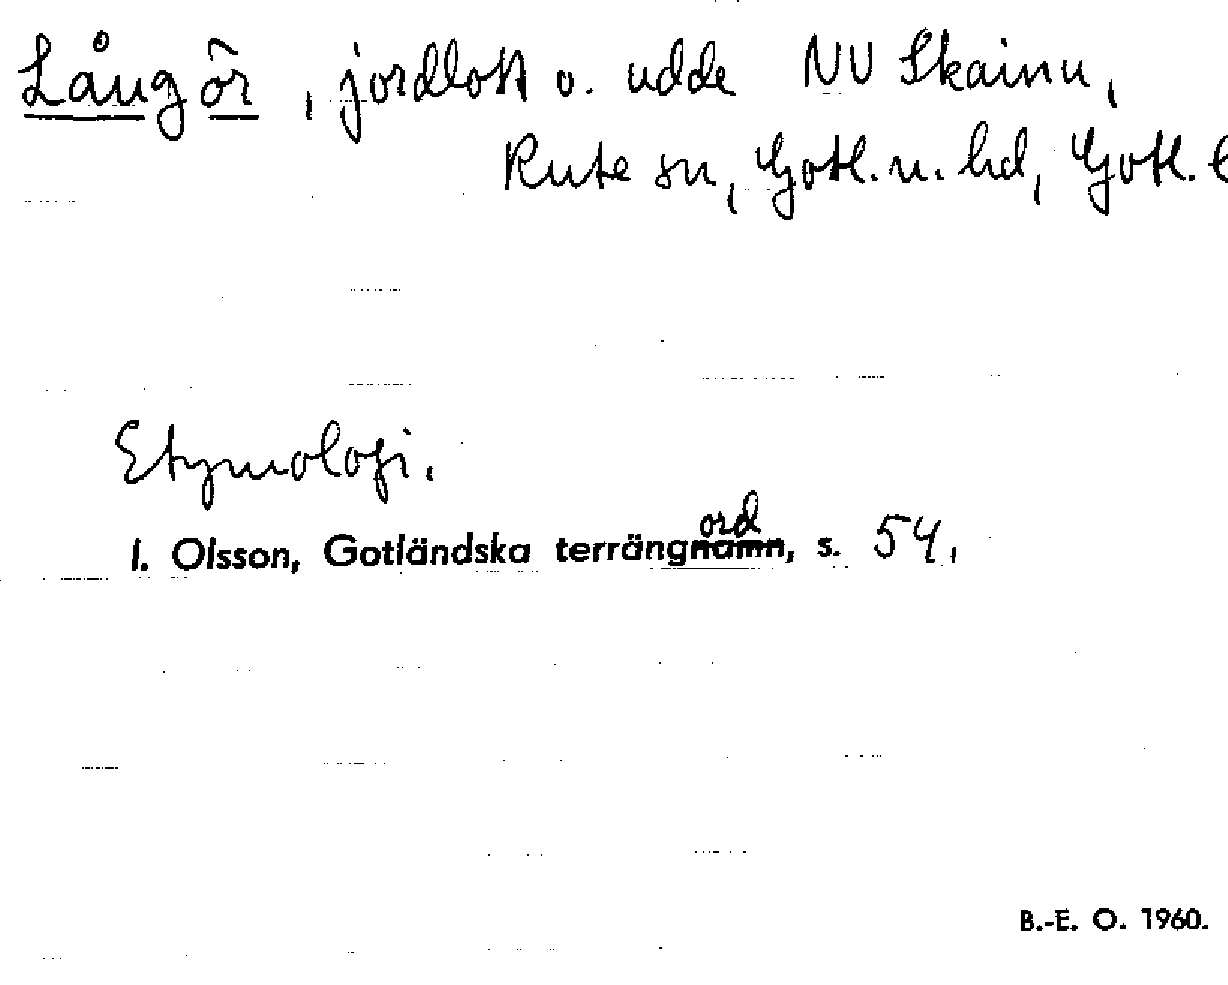 Långör, jordlott o. udde NV Skainu,
Rute sn, Gotl. n. hd, Gotl. l
Etymologi.
I. Olsson, Gotländska terrängord, s. 54.
B.-E. O. 1960.